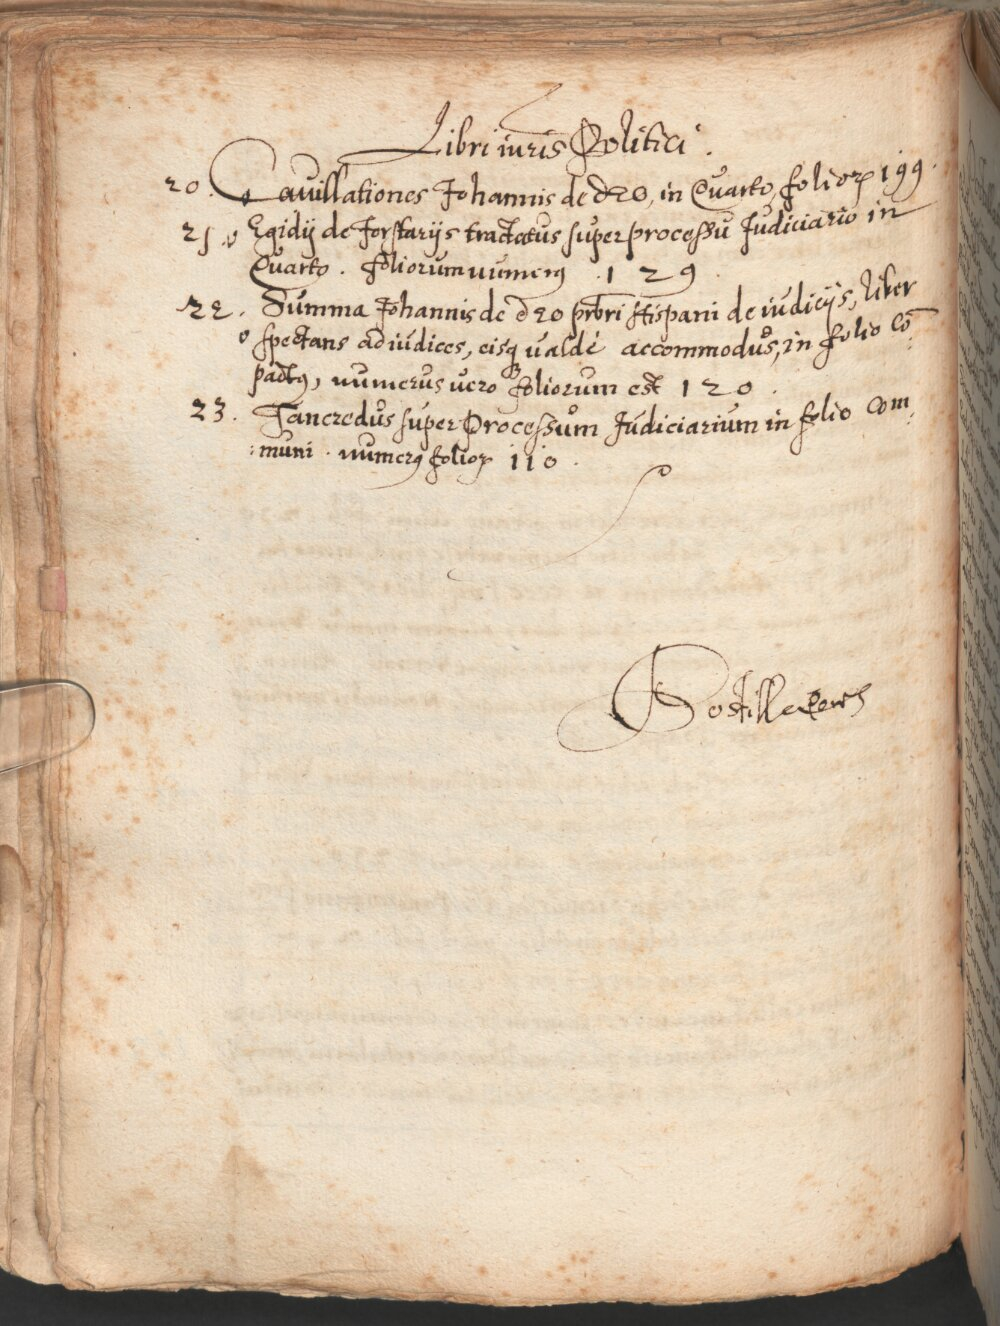 Libri iuris Politici.
20. Cauillationes Johannis de deo, in Quarto, folioꝝ 199.
21. Egidij de forstarijs tractatus super processu Judiciario in
Quarto. foliorum numerꝰ 129.
22. Summa Johannis de deo pr̄bri Hispani de iudicijs, liber
spectans ad iudices, eisqꝫ valde accommodus, in folio cō
pactꝰ, numerus vero foliorum est 120.
23. Tancredus super Processum Judiciarium in folio com
muni. numerꝰ folioꝝ 110.